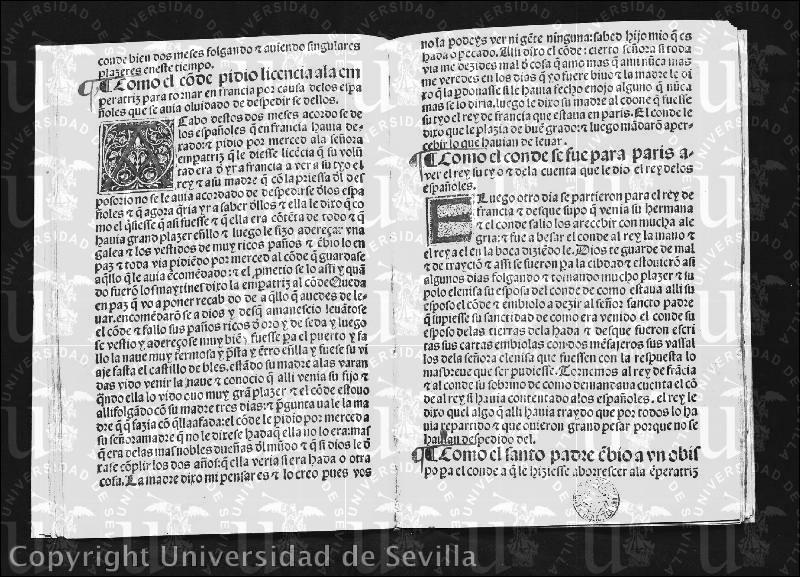 conde bien dos meses folgando ⁊ auiendo singulares
plazeres eneste tiempo.
¶Como el cõde pidio licencia ala em
peratriz para tornar en francia por causa delos espa
ñoles que se auia oluidado de despedir se dellos.
ACabo destos dos meses acordo se de
los españoles q̃ en francia hauia de-
xado: ⁊ pidio por merced ala señora
empatriz q̃ le diesse licẽcia q̃ su volũ
tad era d̃ yr a francia a ver a su tyo el
rey ⁊ a su madre q̃ cõ la priessa d̃l des
posorio no se le auia acordado de despedirse d̃los espa
ñoles ⁊ q̃ agora q̃ria yr a saber d̃llos ⁊ ella le dixo q̃ co
mo el q̃siesse q̃ assi fuesse ⁊ q̃ ella era cõtẽta de todo ⁊ q̃
hauia grand plazer ẽllo ⁊ luego le fizo adereçar vna
galea ⁊ los vestidos de muy ricos paños ⁊ ẽbio lo en
paz ⁊ toda via pidiẽdo por merced al cõde q̃ guardase
aq̃llo q̃ le auia ẽcomẽdado: ⁊ el ꝓmetio se lo assi ⁊ quã
do fuerõ los maytines dixo la empatriz al cõde Queda
en paz q̃ vo a poner recabdo de aq̃llo q̃ auedes de le-
uar. encomẽdarõ se a dios y desq̃ amanescio leuãtose
el cõde ⁊ fallo sus paños ricos d̃ oro y de seda y luego
se vestio y adereço se muy biẽ ⁊ fuesse pa el puerto y fa
llo la naue muy fermosa y p̃sta y ẽtro ẽlla y fuese su vi
aje fasta el castillo de bles. estãdo su madre alas varan
das vido venir la naue ⁊ conocio q̃ alli venia su fijo ⁊
q̃ndo ella lo vido ouo muy grã plazer ⁊ el cõde estouo
alli folgãdo cõ su madre tres dias: ⁊ p̃gunta uale la ma
dre q̃ fazia cõ q̃lla fada: el cõde le pidio por merced a
su señora madre q̃ no le dixese hada q̃ ella no lo era: mas
q̃ era delas mas nobles dueñas d̃l mũdo ⁊ q̃ si dios le d̃
xase cõplir los dos años: q̃ ella veria si era hada o otra
cosa. La madre dixo mi pensar es ⁊ lo creo pues vos
no la podeys ver ni gẽte ninguna: sabed hijo mio q̃ es
hada o pecado. Alli dixo el cõde: cierto señora si toda
via me dezides mal d̃ cosa q̃ amo mas q̃ a mi nũca mas
me veredes en los dias q̃ yo fuere biuo ⁊ la madre le di
xo q̃ la ꝑdonasse si le hauia fecho enojo alguno q̃ nũca
mas se lo diria. luego le dixo su madre al cõde q̃ fuesse
su tyo el rey de francia que estaua en paris. El conde le
dixo que le plazia de buẽ grado: ⁊ luego mãdarõ aper-
cebir lo que hauian de leuar.
¶Como el conde se fue para paris a-
ver el rey su tyo ⁊ dela cuenta que le dio el rey delos
españoles.
ELuego otro dia se partieron para el rey de
francia ⁊ desque supo q̃ venia su hermana
⁊ el conde salio los a recebir con mucha ale
gria: ⁊ fue a besar el conde al rey la mano ⁊
el rey a el en la boca diziẽdo le. Dios te guarde de mal
⁊ de trayciõ ⁊ assi se fueron pa la cibdad ⁊ estouierõ assi
algunos dias folgando ⁊ tomando mucho plazer ⁊ su
polo elenisa su esposa del conde de como estaua alli su
esposo el cõde ⁊ embiolo a dezir al señor santo padre
q̃ supiesse su sanctidad de como era venido el conde su
esposo delas tierras dela hada ⁊ desque fueron escri
tas sus cartas embiolas con dos mẽsajeros sus vassal
los dela señora elenisa que fuessen con la respuesta lo
mas breue que ser pudiesse. Tornemos al rey de frãcia
⁊ al conde su sobrino de como demandaua cuenta el cõ
de al rey si hauia contentado alos españoles. el rey le
dixo quel algo q̃ alli hauia traydo que por todos lo ha
uia repartido ⁊ que ouieron grand pesar porque no se
hauian despedido del.
¶Como el santo padre ẽbio a vn obis
po pa el conde a q̃ le hiziesse aborrescer ala ẽperatriz
Copyright Universidad de Sevilla